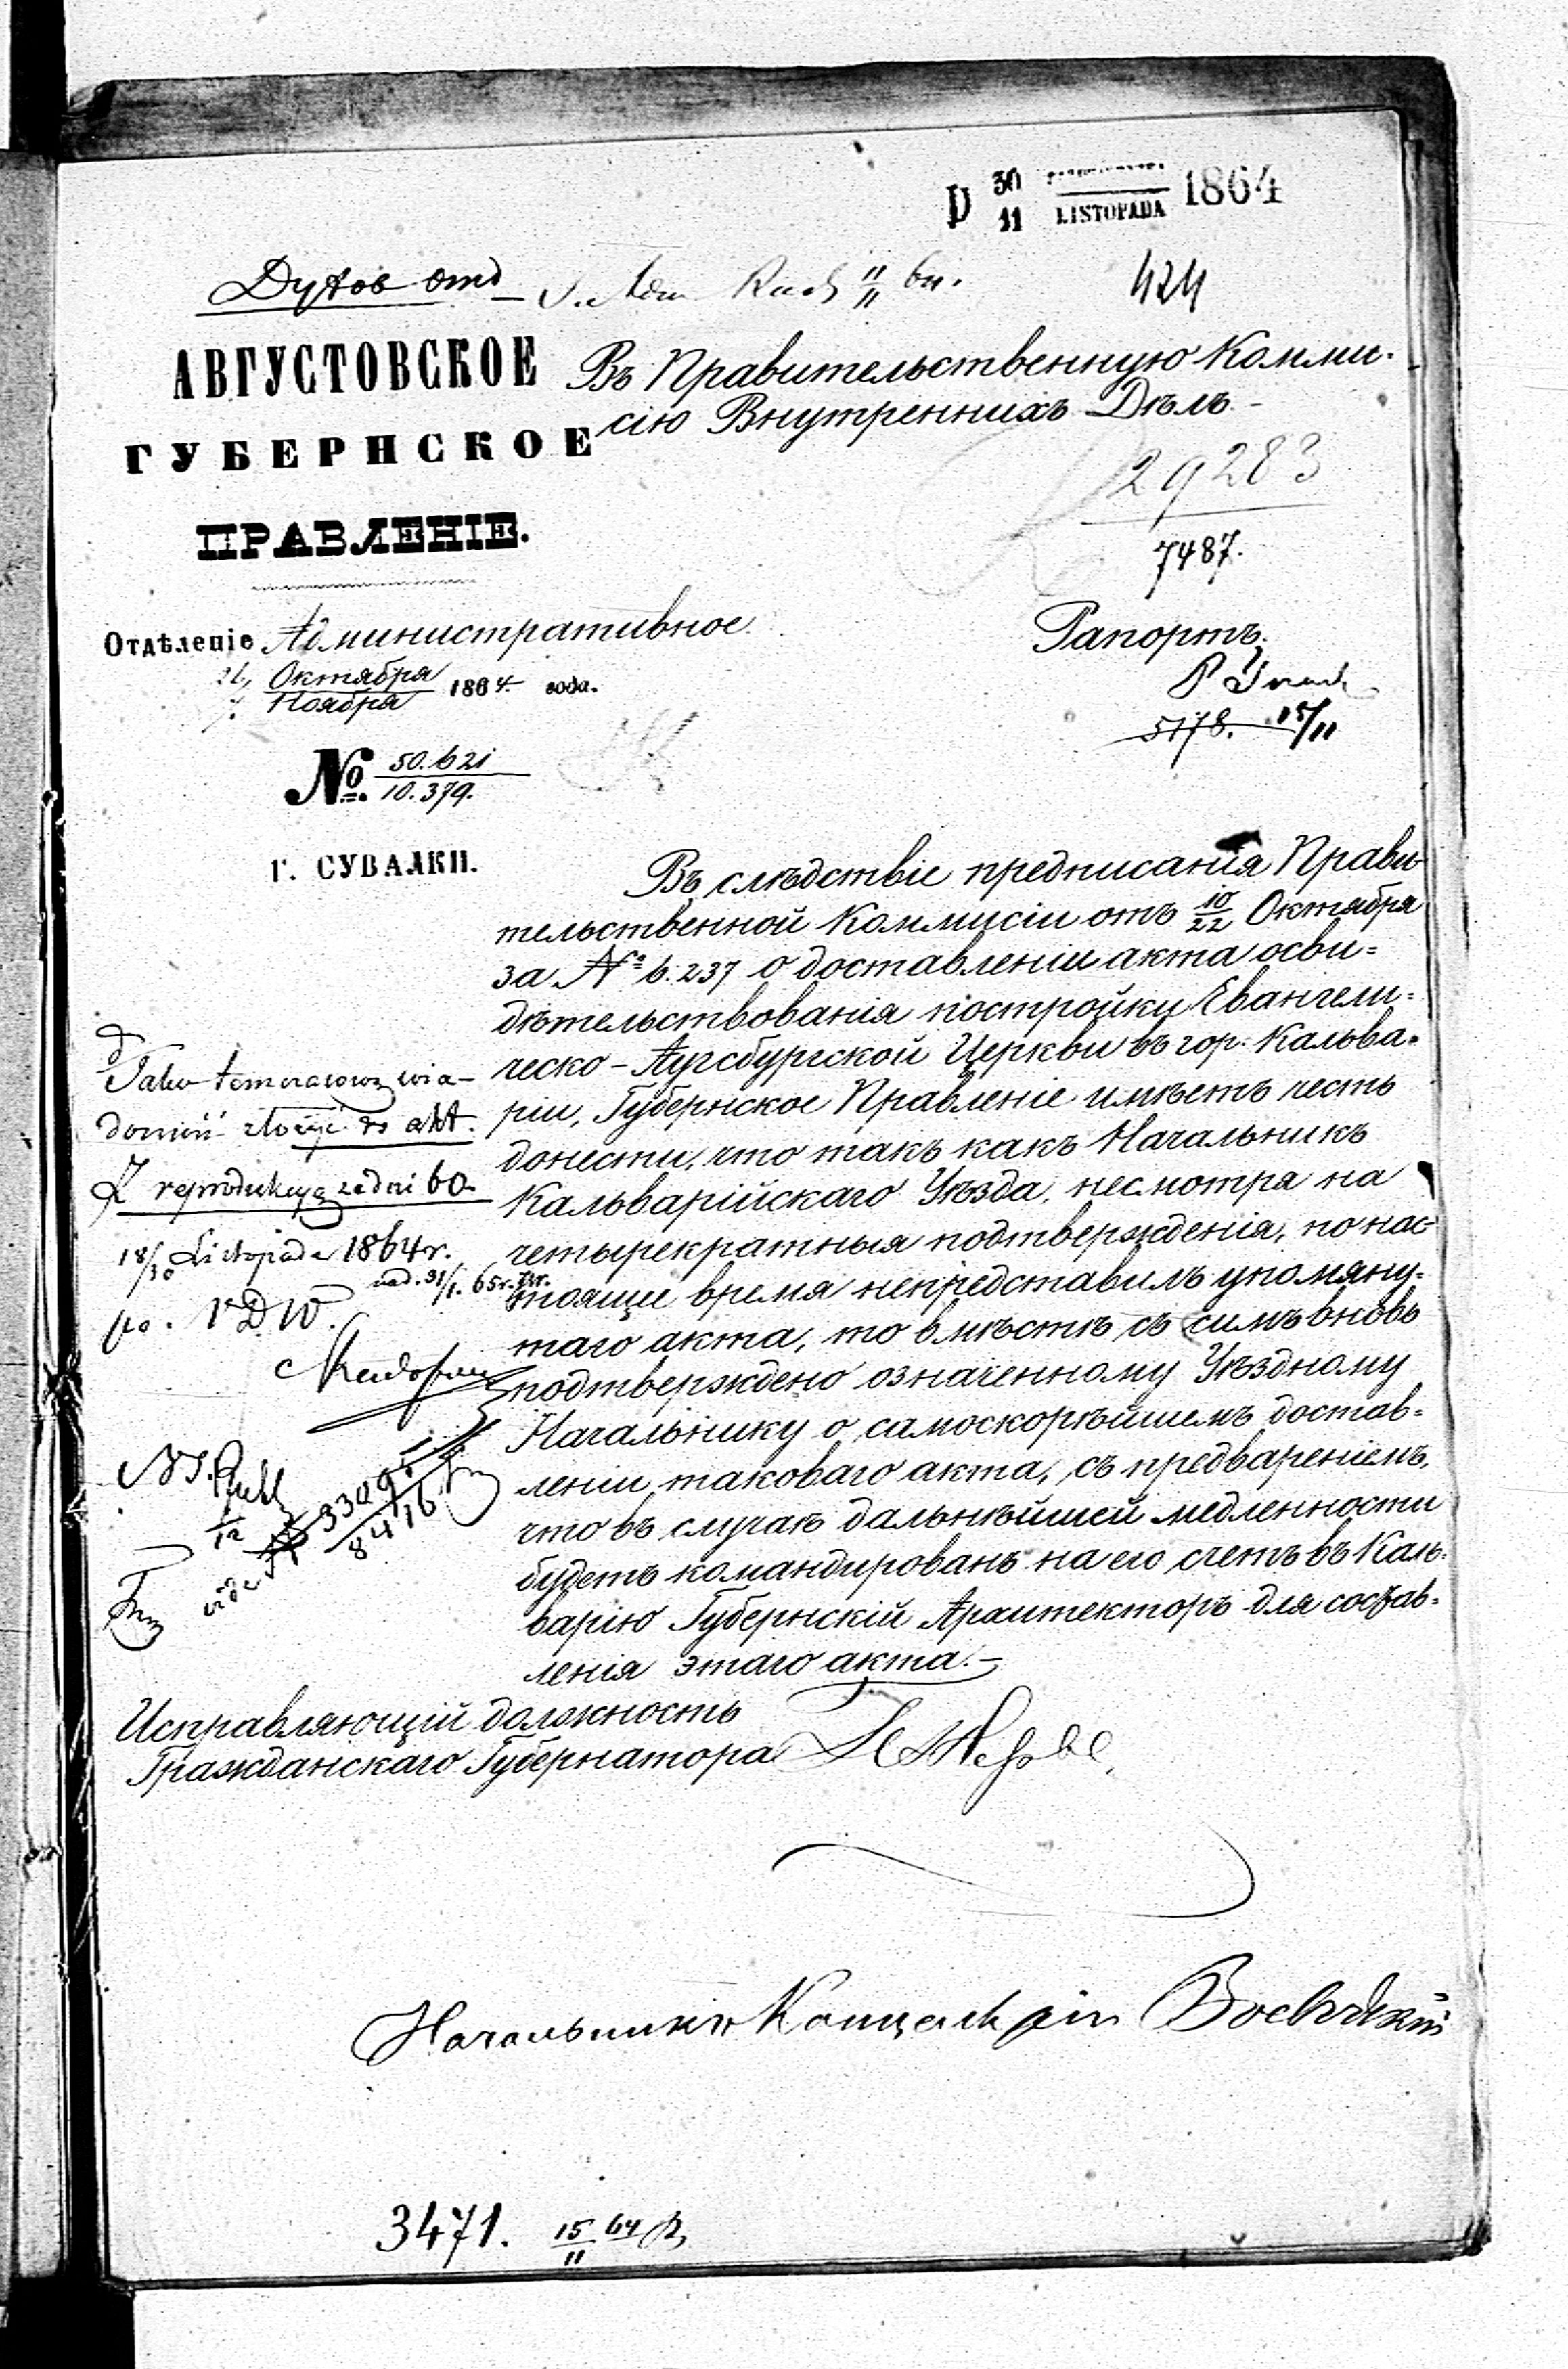 D 30/11 LISTOPADA 1864
Духов отд
424
АВГУСТОВСКОЕ
ГУБЕРНСКОЕ
ПРАВЛЕНІЕ.
Въ Правительственную Комми-
сію Внутреннихъ Дѣлъ.-
29283
7487.
Отдѣленіе Административное.
26/7 Октября/Ноября 1864 года.
№ 50.621/10.379.
Г. СУВАЛКИ.
Рапортъ.
5178. 15/11
Въ слѣдствіе предписанія Прави-
тельственной Коммисіи отъ 10/22 Октября
за № 6.237 о доставленіи акта осви=
дѣтельствованія постройки Евангели=
ческо-Аугсбургской Церкви въ гор: Кальва=
ріи, Губернское Правленіе имѣетъ честь
донести, что такъ какъ Начальникъ
Кальварійскаго Уѣзда, несмотря на
четырекратныя подтвержденія, по нас-
тоящее время непредставилъ упомяну=
таго акта, то вмѣстѣ съ симъ вновь
подтверждено означенному Уѣздному
Начальнику о самоскорѣйшемъ достав=
леніи таковаго акта, съ предвареніемъ,
что въ случаѣ дальнѣйшей медленности
будетъ командированъ на его счетъ въ Каль=
варію Губернскій Архитекторъ для состав=
ленія этаго акта.-
Jako tymczasową wia-
domość złożyć do akt.
Z reprodukcyą za dni 60
18/30 Listopada 1864 r.
po. V D W.
3309
8416
Исправляющій должность
Гражданскаго Губернатора
Начальникъ Канцеляріи
3471. 15/11 64